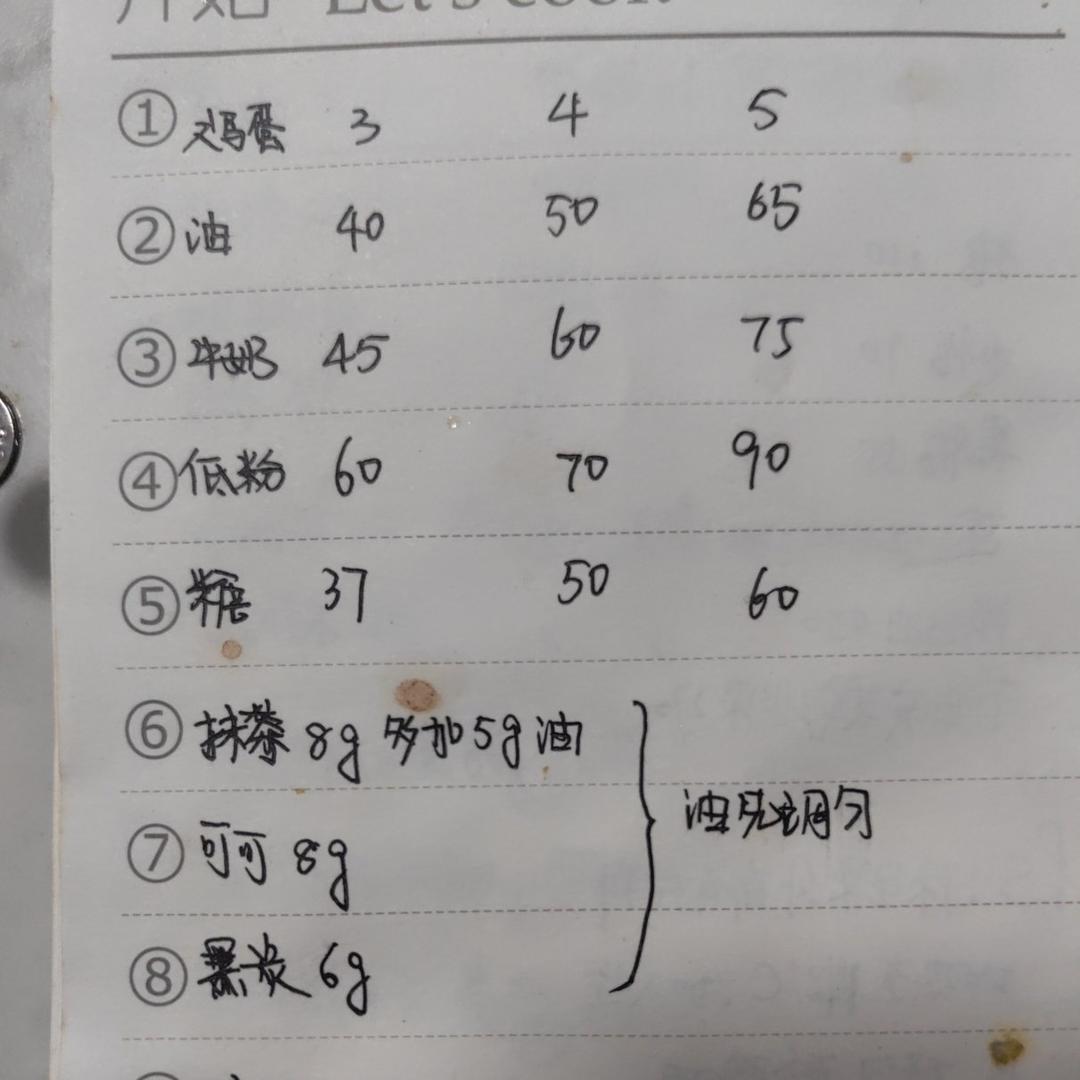 开始 Let's cook
① 鸡蛋 3 4 5
② 油 40 50 65
③ 牛奶 45 60 75
④ 低粉 60 70 90
⑤ 糖 37 50 60
⑥ 抹茶 8g 多加5g油
⑦ 可可 8g
油先调匀
⑧ 黑炭 6g